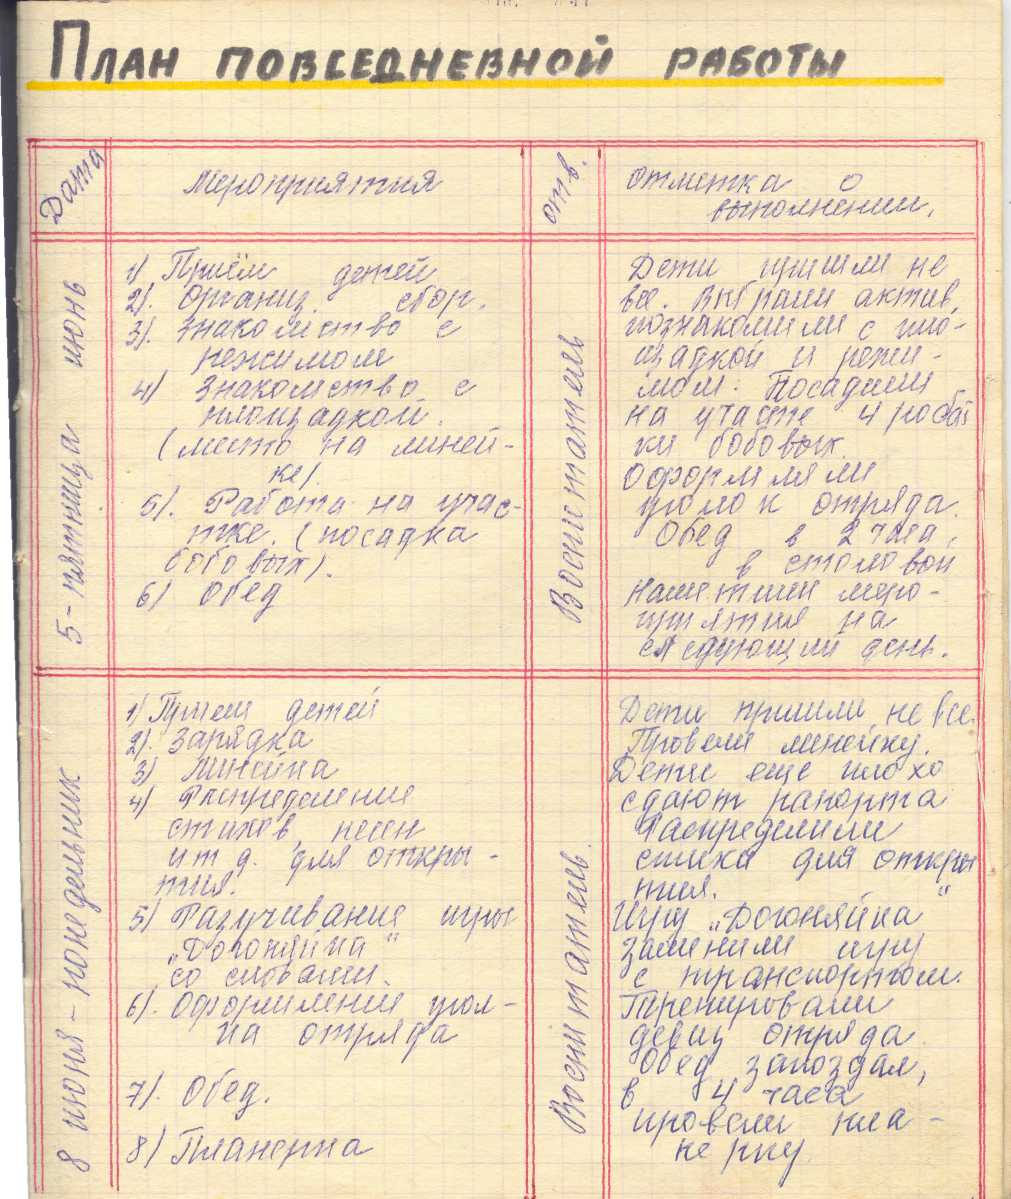 План повседневной работы
Дата
Мероприятия
отв.
отметка о
выполнении.
5 - пятница июнь
1) Приём детей
2). Организ. сбор.
3). Знакомство с
режимом
4) Знакомство с
площадкой.
(место на линей-
ке).
5). Работа на учас-
тке. (посадка
бобовых).
6) Обед
Воспитатель
Дети пришли не
все. Выбрали актив,
познакомили с пло-
щадкой и режи-
мом. Посадили
на участке 4
ки бобовых.
Оформляли
уголок отряда.
Обед в 2 часа,
в столовой
Наметили меро-
приятия на
следующий день.
8 июня - понедельник
1) Прием детей
2). Зарядка
3) Линейка
4) Распределение
стихов, песен
и т д. для откры-
тия.
5) Разучивание игры
„Догоняйка"
со словами.
6). Оформление угол-
ка отряда
7). Обед.
8) Планерка
Воспитатель.
Дети пришли не все.
Провели линейку.
Дети еще плохо
сдают рапорта
Распределили
стихи для откры
тия.
Игру „Догоняйка"
заменили игру
с транспортом.
Тренировали
девиз отряда.
Обед запоздал,
в 4 часа
провели пла-
нерку